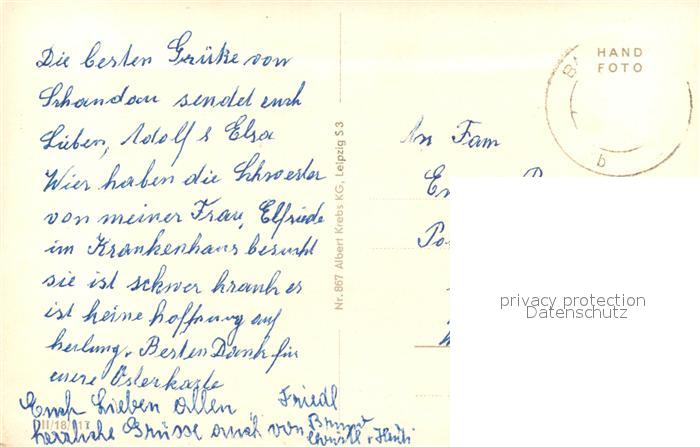 Die besten Grüße von
Schandau sendet euch
Lieben, Adolf & Elsa
Wier haben die Schwester
von meiner Frau, Elfriede
im Krankenhaus besucht
sie ist schwer krank es
ist keine hoffnung auf
heilung. Besten Dank für
eure Osterkarte
Friedl
Euch Lieben allen
herzliche Grüsse auch von
III/18/
Nr. 867 Albert Krebs KG, Leipzig S 3
HAND
FOTO
BA
b
An Fam
privacy protection
Datenschutz